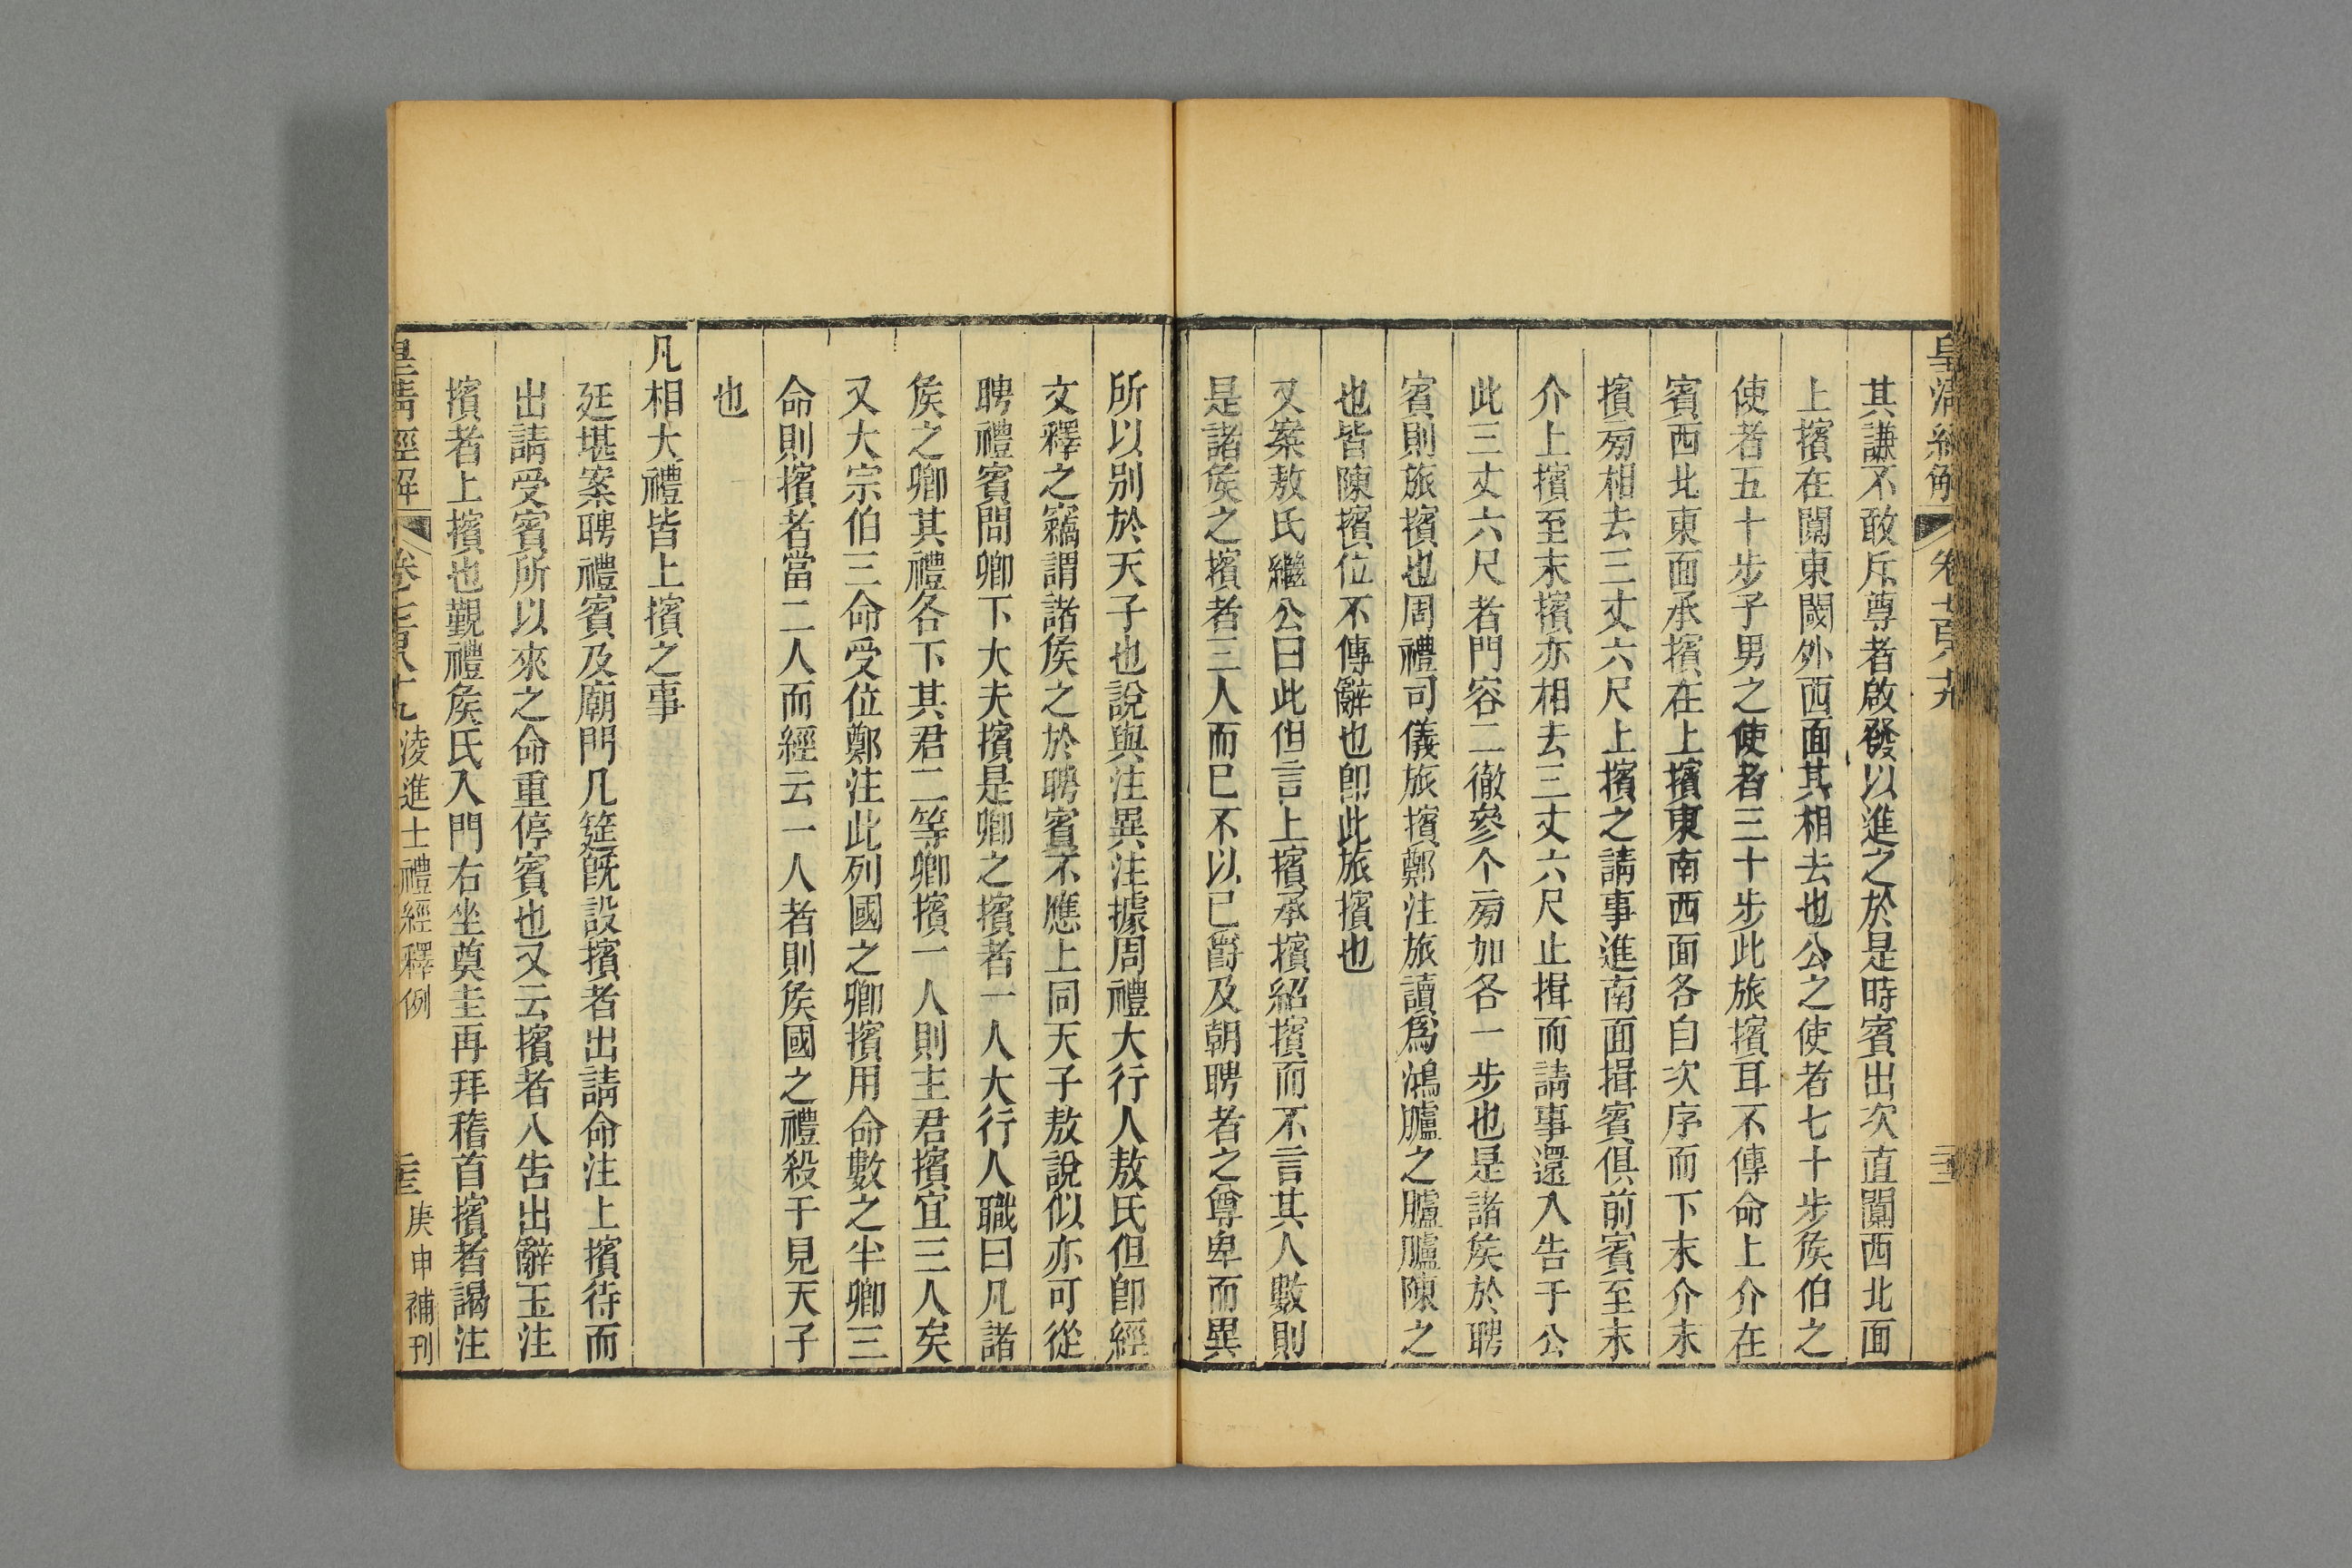 其謙不敢斥尊者啟發以進之於是時賓出次直闑西北面
上擯在闑東閾外西面其相去也公之使者七十步矦伯之
使者五十步子男之使者三十步此旅擯耳不傳命上介在
賓西北東面承擯在上擯東南西面各自次序而下末介末
擯㫄相去三丈六尺上擯之請事進南面揖賓俱前賓至末
介上擯至末擯亦相去三丈六尺止揖而請事還入告于公
此三丈六尺者門容二徹參个㫄加各一步也是諸矦於聘
賓則旅擯也周禮司儀旅擯鄭注旅讀爲鴻臚之臚臚陳之
也皆陳擯位不傳辭也卽此旅擯也
又案敖氏繼公曰此但言上擯承擯紹擯而不言其人數則
是諸矦之擯者三人而已不以已爵及朝聘者之尊卑而異
所以別於天子也說與注異注據周禮大行人敖氏但卽經
文釋之竊謂諸矦之於聘賓不應上同天子敖說似亦可從
聘禮賓問卿下大夫擯是卿之擯者一人大行人職曰凡諸
矦之卿其禮各下其君二等卿擯一人則主君擯宜三人矣
又大宗伯三命受位鄭注此列國之卿擯用命數之半卿三
命則擯者當二人而經云一人者則矦國之禮殺于見天子
也
凡相大禮皆上擯之事
廷堪案聘禮賓及廟門几筵旣設擯者出請命注上擯待而
出請受賓所以來之命重停賓也又云擯者入告出辭玉注
擯者上擯也覲禮矦氏入門右坐奠圭再拜稽首擯者謁注
皇淸經解 卷七百八十九 淩進士禮經釋例 庚申補刊